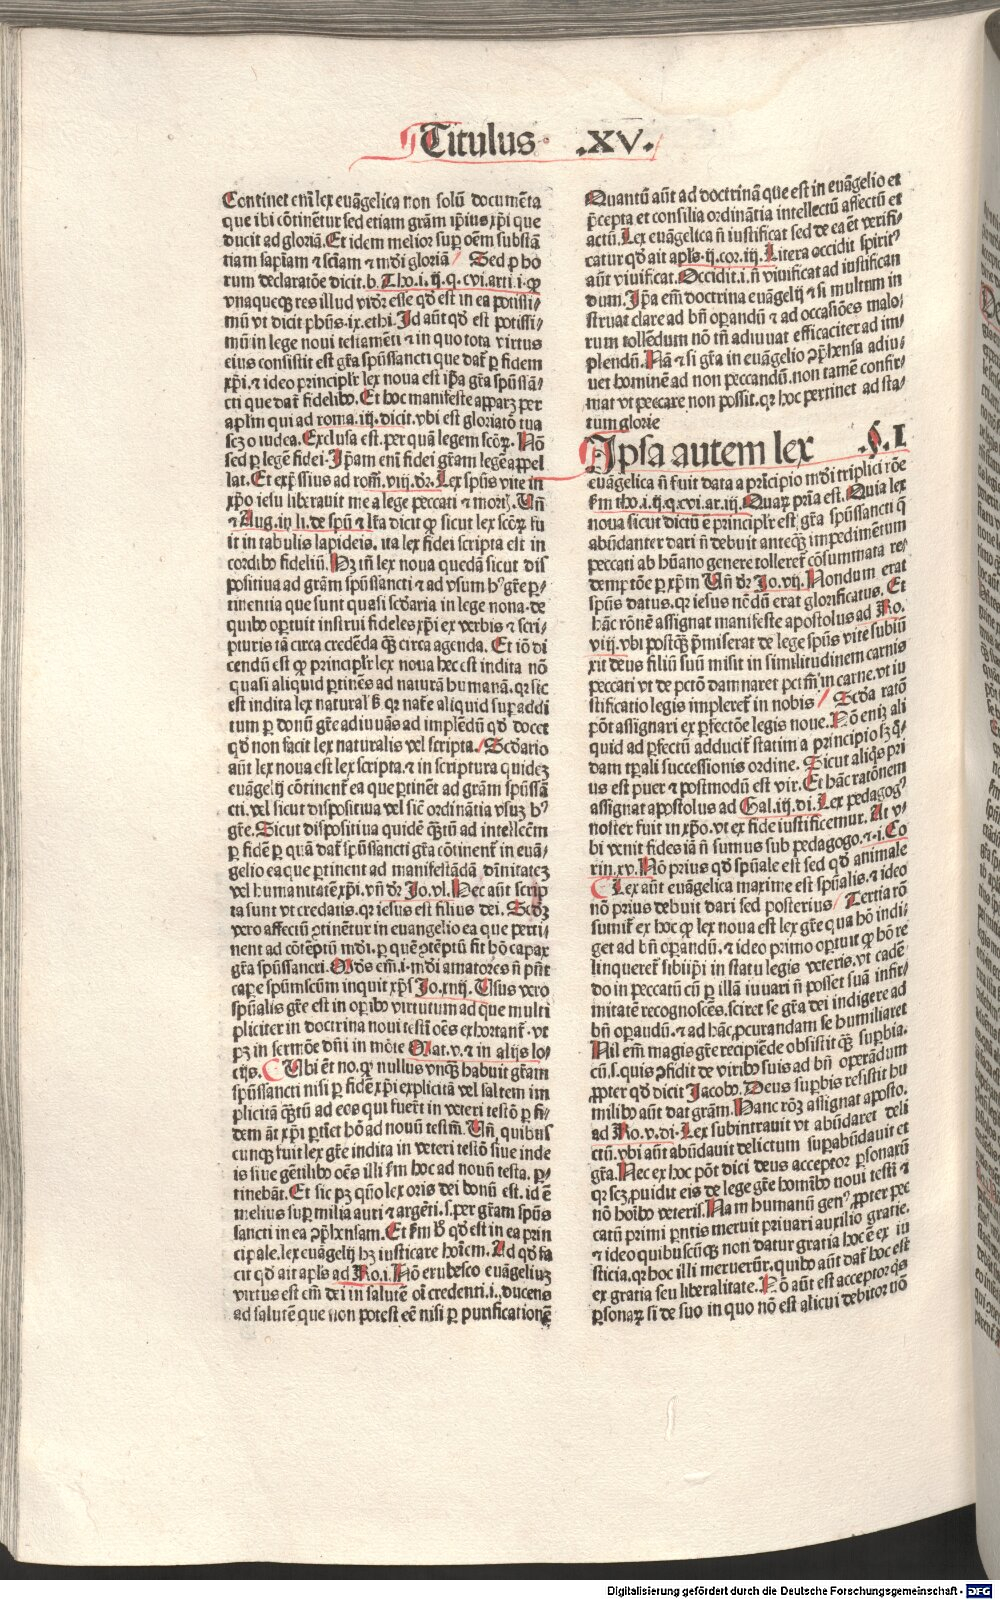 Titulus .XV.
Continet em̄ lex euāgelica non solū documēta
que ibi cōtinētur sed etiam grām ip̄ius xp̄i que
ducit ad gloriā. Et idem melior sup oēm substā
tiam sapīam ⁊ scīam ⁊ mūdi gloriā / Sed p ho
rum declaratōe dicit.b. Tho.i.ij.q.cvi.arti.i. ꝙ
vnaqueqꝫ res illud vidr̄ esse qd̄ est in ea potissi⸗
mū vt dicit ph̄us.ix.ethi. Id aūt qd̄ est potissi⸗
mū in lege noui testamēti ⁊ in quo tota virtus
eius consistit est gr̄a spūssancti que dat̄ p fidem
xp̄i.⁊ ideo principlr̄ lex noua est ip̄a gr̄a spūssā⸗
cti que dat̄ fidelibꝰ. Et hoc manifeste apparꝫ per
aplm̄ qui ad roma.iij.dicit.vbi est gloriatō tua
scꝫ o iudea. Exclusa est. per quā legem fcōꝝ. Nō
sed p legē fidei. Ip̄am em̄ fidei gr̄am legē appel
lat. Et exp̄ssius ad rom̄.viij.dr̄. Lex spūs vite in
xp̄o iesu liberauit me a lege peccati ⁊ mortꝭ. Un̄
⁊ Aug.in li.de spū ⁊ lr̄a dicit ꝙ sicut lex fcōꝝ fu
it in tabulis lapideis. ita lex fidei scripta est in
cordibꝰ fideliū. Hꝫ tn̄ lex noua quedā sicut dis
positiua ad grām spūssancti ⁊ ad vsum hꝰ gr̄e p⸗
tinentia que sunt quasi scdaria in lege noua.de
quibꝰ oportuit instrui fideles xp̄i ex verbis ⁊ scri⸗
pturis tā circa credēda qꝫ circa agenda. Et iō di
cendū est ꝙ principlr̄ lex noua hec est indita nō
quasi aliquid ptinēs ad naturā humanā.qꝛ sic
est indita lex natural̄ sꝫ qꝛ nat̄e aliquid supaddi
tum p donū gr̄e adiuuās ad implēdū qd̄ docet
qd̄ non facit lex naturalis vel scripta. / Scdario
aūt lex noua est lex scripta.⁊ in scriptura quideꝫ
euāgelij cōtinent̄ ea que ptinēt ad grām spūssā
cti.vel sicut dispositiua vel sic̄ ordinātia vsuꝫ hꝰ
gr̄e. Sicut dispositiua quidē qꝫtū ad intellectm̄
p fidē p quā dat̄ spūssancti gr̄a cōtinent̄ in euā⸗
gelio ea que ptinent ad manifestādā diuinitateꝫ
vel humanitatem xp̄i.vn̄ dr̄ Jo.vl. Hec aūt scrip
ta sunt vt credatis.qꝛ iesus est filius dei. Scd̄ꝫ
vero affectū ꝯtinētur in euangelio ea que perti⸗
nent ad cōtēptū mūdi.p quē ꝯtēptū fit hō capax
gr̄a spūssancti. Mūds em̄.i.mūdi amatores n̄ pn̄t
cape spūmscm̄ inquit xp̄s Jo.xiiij. Usus vero
spūalis gr̄e est in opibꝰ virtutum ad que multi
pliciter in doctrina noui testi oēs exhortant̄.vt
pꝫ in sermōe dn̄i in mōte Mat.v.⁊ in alijs lo⸗
cijs. Ubi ēt no. ꝙ nullus vnqꝫ habuit gr̄am
spūssancti nisi p fidē xp̄i explicitā vel saltem im
plicitā qꝫtū ad eos qui fuer̄t in veteri testō p fi⸗
dem āt xp̄i ptīet hō ad nouū testm̄. Un̄ quibus
cunqꝫ fuit lex gr̄e indita in veteri testō siue iude
is siue gētilibꝰ oēs illi fm hoc ad nouū testa. p⸗
tinebāt. Et sic pꝫ quō lex oris dei bonū est. id ē
melius sup milia auri ⁊ argēti.s.per gr̄am spūs
sancti in ea ꝯp̄hēsam. Et fm id qd̄ est in ea prin
cipale.lex euāgelij hꝫ iusticare hoīem. Ad qd̄ fa
cit qd̄ ait apls ad Ro.i. Nō erubesco euāgeliuꝫ
virtus est em̄ dei in salutē oī credenti.i. ducens
ad salutē que non potest eē nisi p purificationē
Quantū aūt ad doctrinā que est in euāgelio et
p̄cepta et consilia ordinātia intellectū affectū et
actū. Lex euāgelica n̄ iustificat sed de ea ēt verifi⸗
catur qd̄ ait apls.ij.cor.iij. Litera occidit spiritꝰ
aūt viuificat. Occidit.i.n̄ viuificat ad iustifican
dum. Ip̄a em̄ doctrina euāgelij ⁊ si multum in
struat clare ad bn̄ operandū ⁊ ad occasiōes malo⸗
rum tollēdum nō tn̄ adiuuat efficaciter ad im⸗
plendū. Nā ⁊ si gr̄a in euāgelio ꝯp̄hēsa adiu⸗
uet hominē ad non peccandū.non tamē confir⸗
mat vt peccare non possit.qꝛ hoc pertinet ad sta⸗
tum glorie
Ipsa autem lex .§.I
euāgelica n̄ fuit data a prīcipio mūdi triplici rōe
fm tho.i.ij.q.cvi.ar.iij. Quaꝝ pria est. Quia lex
noua sicut dictū ē principlr̄ est gr̄a spūssancti q̄
abūdanter dari n̄ debuit anteqꝫ impedimētum
peccati ab hūano genere tolleret̄ cōsummata re⸗
demptōe p xp̄m Un̄ dr̄ Jo.vij. Nondum erat
spūs datus.qꝛ iesus nōdū erat glorificatus. Et
hāc rōnē assignat manifeste apostolus ad Ro.
viij.vbi postqꝫ p̄miserat de lege spūs vite subiū
xit deus filiū suū misit in similitudinem carnis
peccati vt de pctō damnaret pctm̄ in carne.vt iu
stificatio legis impleret̄ in nobis / Scdā ratō
pōt assignari ex pfectōe legis noue. Nō eniꝫ ali
quid ad pfectū adducit̄ statim a principio sꝫ q̄⸗
dam tpali successionis ordine. Sicut aliqs pri
us est puer ⁊ postmodū est vir. Et hāc ratōnem
assignat apostolus ad Gal.iij.di. Lex pedagogꝰ
noster fuit in xp̄o.vt ex fide iustificemur. At v⸗
bi venit fides iā n̄ sumus sub pedagogo.⁊.i. Co
rin.xv. Nō prius qd̄ spūale est sed qd̄ animale
Lex aūt euāgelica maxime est spūalis.⁊ ideo
nō prius debuit dari sed posterius / Tertia rō
sumit̄ ex hoc ꝙ lex noua est lex gr̄e qua hō indi⸗
get ad bn̄ opandū.⁊ ideo primo oportuit ꝙ hō re
linqueret̄ sibiip̄i in statu legis veteris.vt cadē⸗
do in peccatū cū p illā iuuari n̄ posset suā infir⸗
mitatē recognoscēs.sciret se gr̄a dei indigere ad
bn̄ opandū.⁊ ad hāc ꝓcurandam se humiliaret
Nil em̄ magis gr̄e recipiēde obsistit qꝫ supbia.
cū.s.quis ꝯfidit de viribꝰ suis ad bn̄ operādum
ꝓpter qd̄ dicit Jacobꝰ. Deus supbis resistit hu
milibꝰ aūt dat gr̄am. Hanc rōꝫ assignat aposto.
ad Ro.v.di. Lex subintrauit vt abūdaret deli
ctū.vbi aūt abūdauit delictum supabūdauit et
gr̄a. Nec ex hoc pōt dici deus acceptor psonarū
qꝛ scꝫ ꝓuidit eis de lege gr̄e hominibꝰ noui testi ⁊
nō hoībꝰ veteris. Nam humanū genꝰ ꝓpter pec
catū primi pntis meruit priuari auxilio gratie.
⁊ ideo quibuscūqꝫ non datur gratia hoc ē ex iu
sticia.qꝛ hoc illi meruerūt.quibꝰ aūt dat̄ hoc est
ex gratia seu liberalitate. Nō aūt est acceptor qs
psonaꝝ si de suo in quo nō est alicui debitor nō
Digitalisierung gefördert durch die Deutsche Forschungsgemeinschaft - DFG